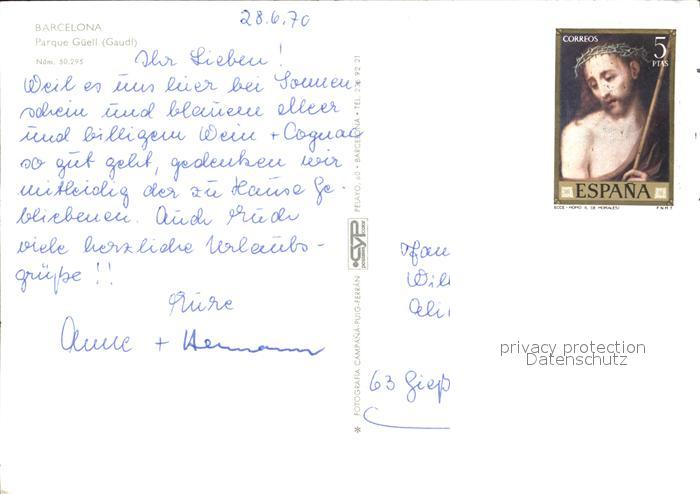 28.6.70
BARCELONA
Parque Güell (Gaudí)
Núm. 50.295
Ihr Lieben!
Weil es uns hier bei Sonnen
schein und blauem Meer
und billigem Wein + Cognac
so gut geht, gedenken wir
mitleidig der zu Hause Ge-
bliebenen. Auch Euch
viele herzliche Urlaubs-
grüße!!
Eure
Anne + Hermann
* FOTOGRAFIA CAMPAÑA-PUIG-FERRÁN
CYP
PELAYO, 60 - BARCELONA - TEL. 92 21
CORREOS
5
PTAS
ESPAÑA
ECCE-HOMO (L. DE MORALES)
F N M T
Wil
63 Gieß
privacy protection
Datenschutz